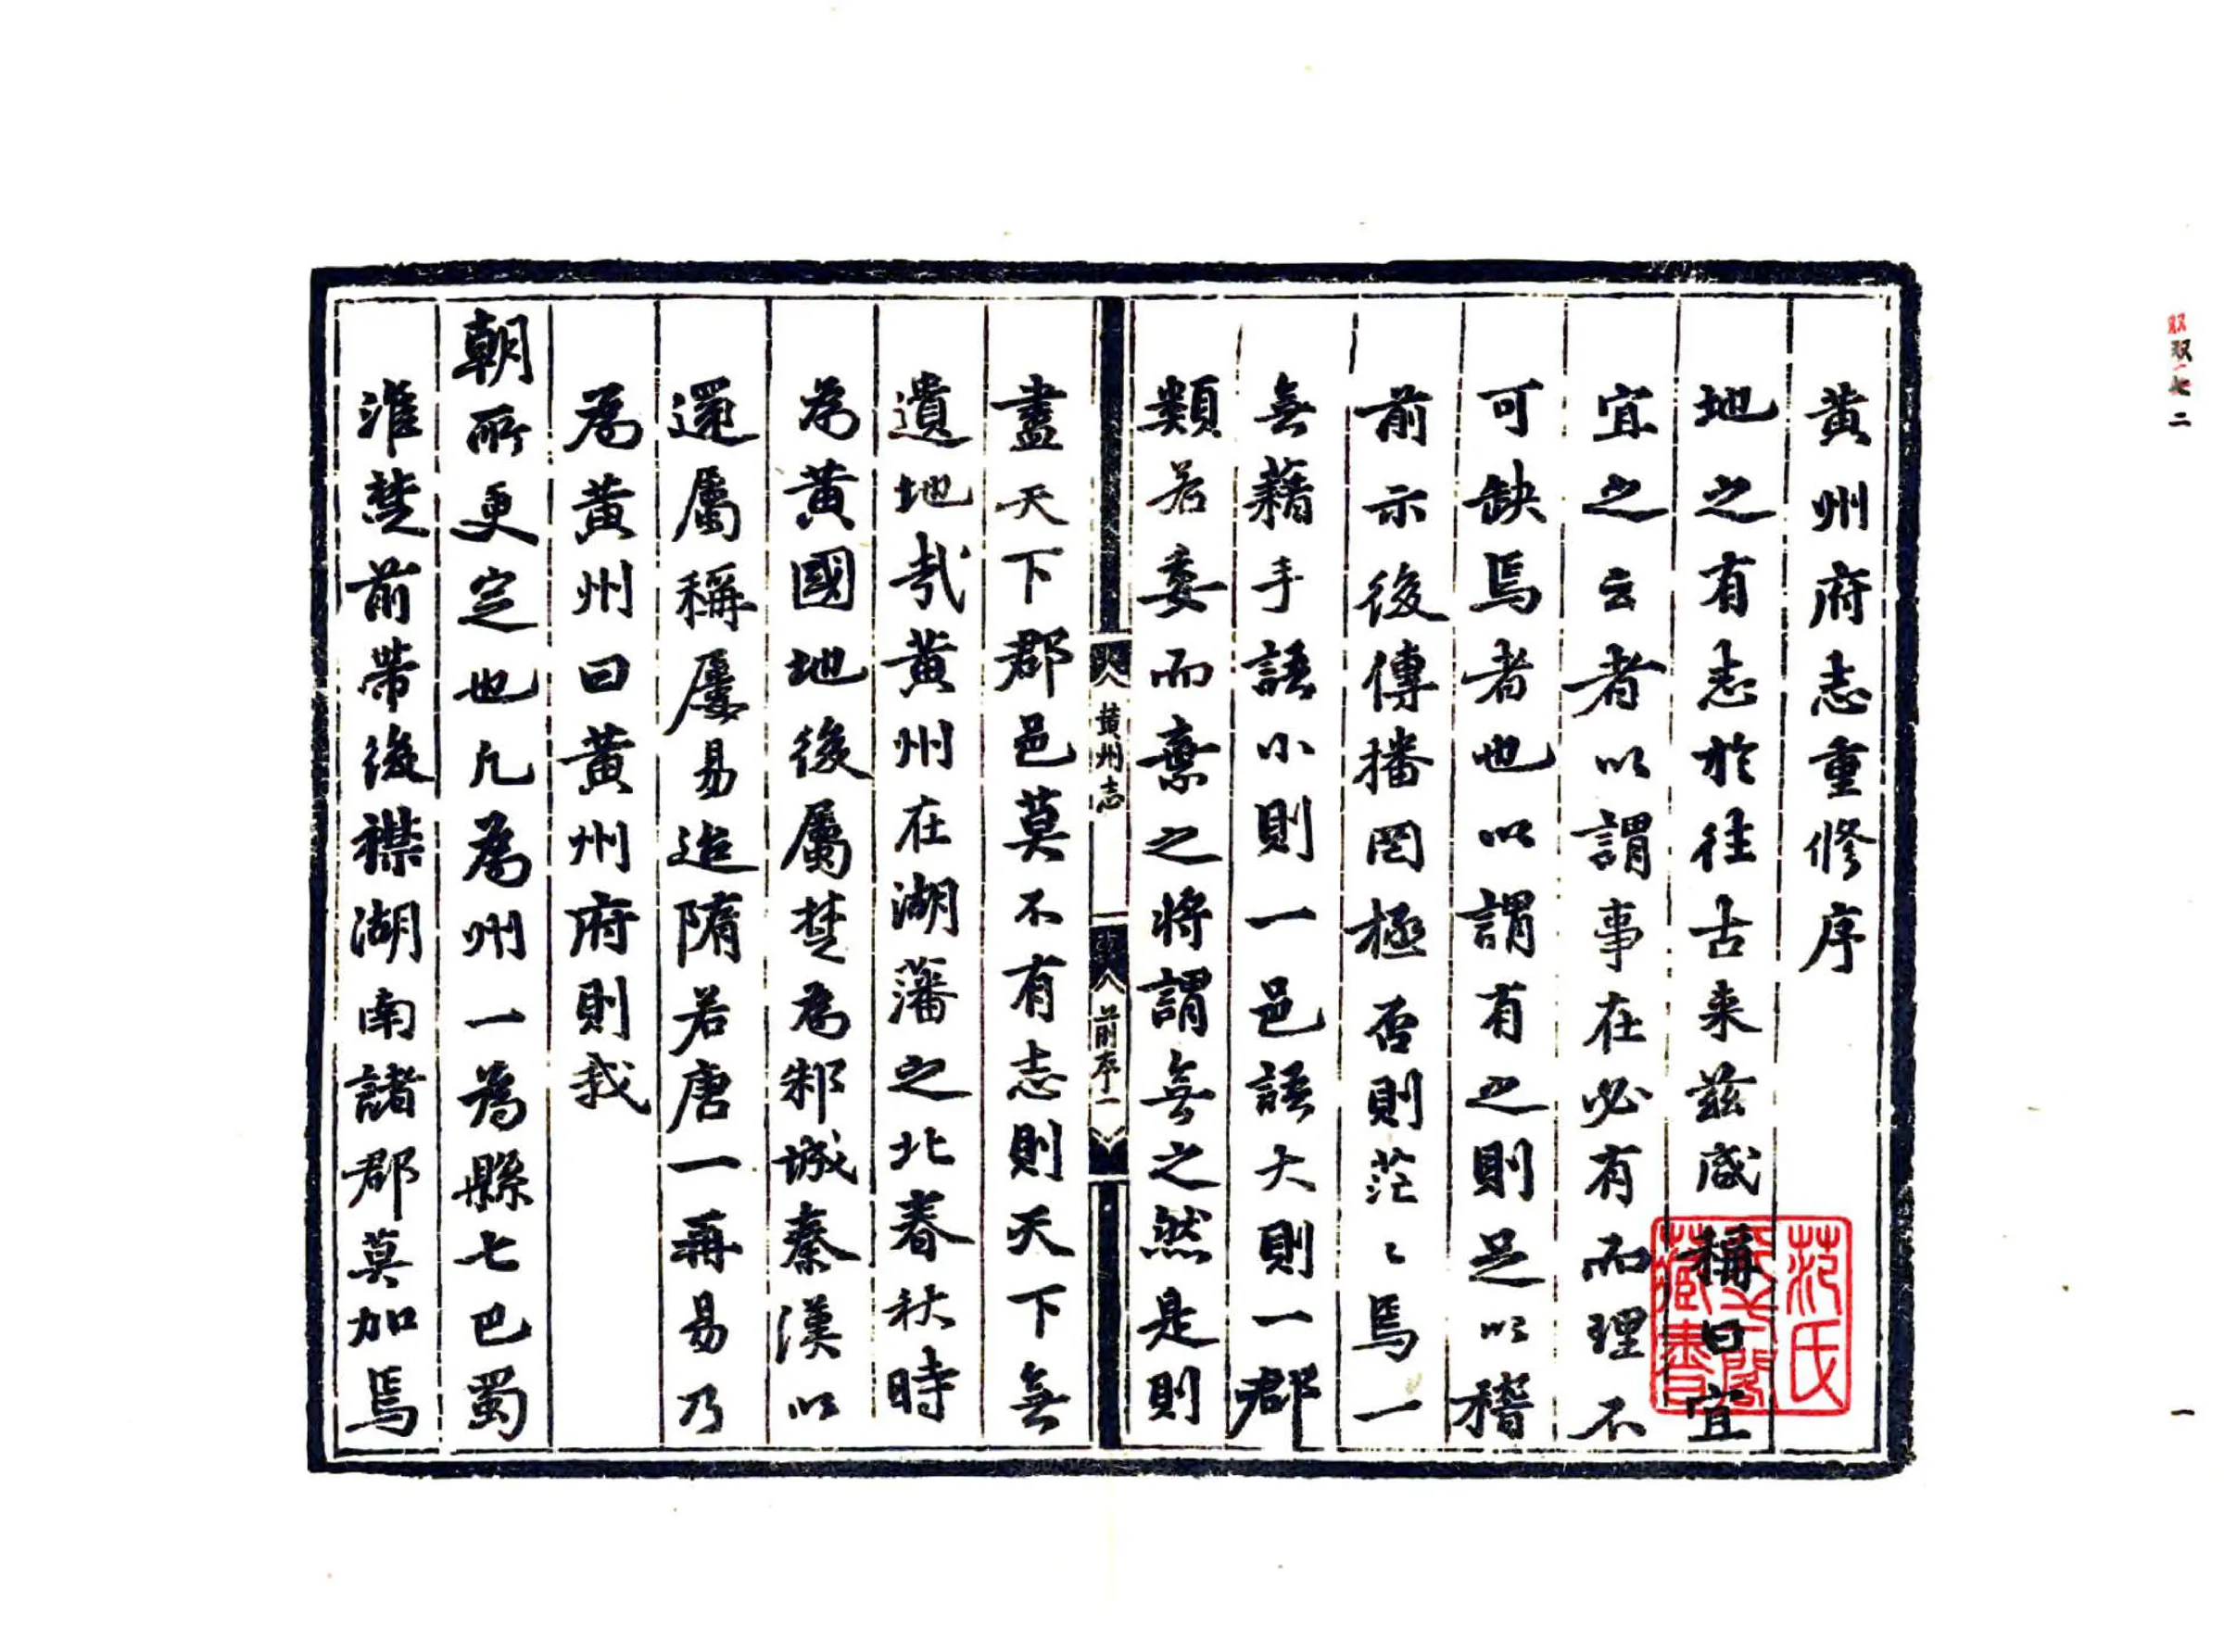 黄州府志重修序
地之有志於往古来兹咸稱曰宜
宜之云者以謂事在必有而理不
可缺焉者也以謂有之則足以稽
前示後傳播罔極否則茫〻焉一
無藉手語小則一邑語大則一郡
類若委而棄之將謂無之然是則
黄州志
前序一
盡天下郡邑莫不有志則天下無
遺地㦲黄州在湖藩之北春秋時
為黄國地後屬楚為邾城秦漢以
還屬稱屢易迨隋若唐一再易乃
為黄州曰黄州府則我
朝所更定也凡為州一為縣七巴蜀
淮楚前帶後襟湖南諸郡莫加焉
范氏
天一閣
藏書
一